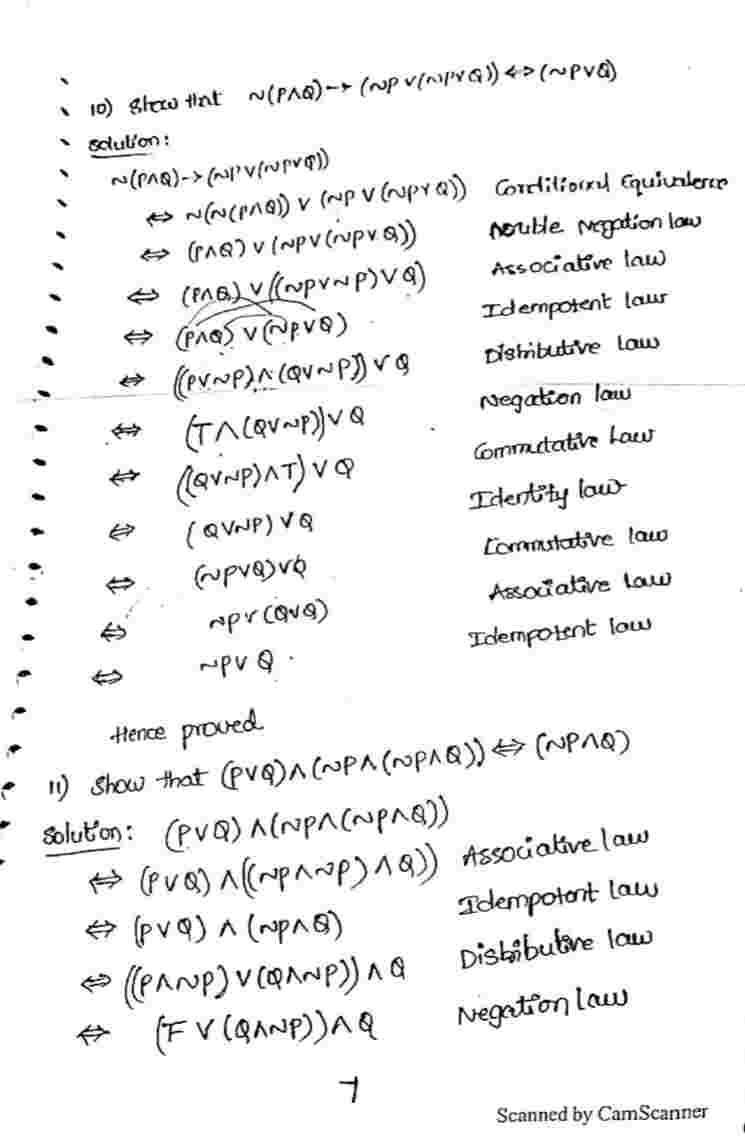 10) Show that ~(P∧Q)→(~P∨(~P∨Q))⇔(~P∨Q)
Solution:
~(P∧Q)→(~P∨(~P∨Q))
⇔ ~(~(P∧Q)) ∨ (~P∨(~P∨Q)) Conditional Equivalence
⇔ (P∧Q)∨(~P∨(~P∨Q)) Double Negation law
⇔ (P∧Q)∨((~P∨~P)∨Q) Associative law
⇔ (P∧Q)∨(~P∨Q) Idempotent law
⇔ ((P∨~P)∧(Q∨~P))∨Q Distributive law
⇔ (T∧(Q∨~P))∨Q Negation law
⇔ ((Q∨~P)∧T)∨Q Commutative Law
⇔ (Q∨~P)∨Q Identity law
⇔ (~P∨Q)∨Q Commutative law
⇔ ~P∨(Q∨Q) Associative law
⇔ ~P∨Q. Idempotent law
Hence proved
11) Show that (P∨Q)∧(~P∧(~P∧Q))⇔(~P∧Q)
Solution: (P∨Q)∧(~P∧(~P∧Q))
⇔ (P∨Q)∧((~P∧~P)∧Q)) Associative law
⇔ (P∨Q)∧(~P∧Q) Idempotent law
⇔ ((P∧~P)∨(Q∧~P))∧Q Distributive law
⇔ (F∨(Q∧~P))∧Q Negation law
7
Scanned by CamScanner